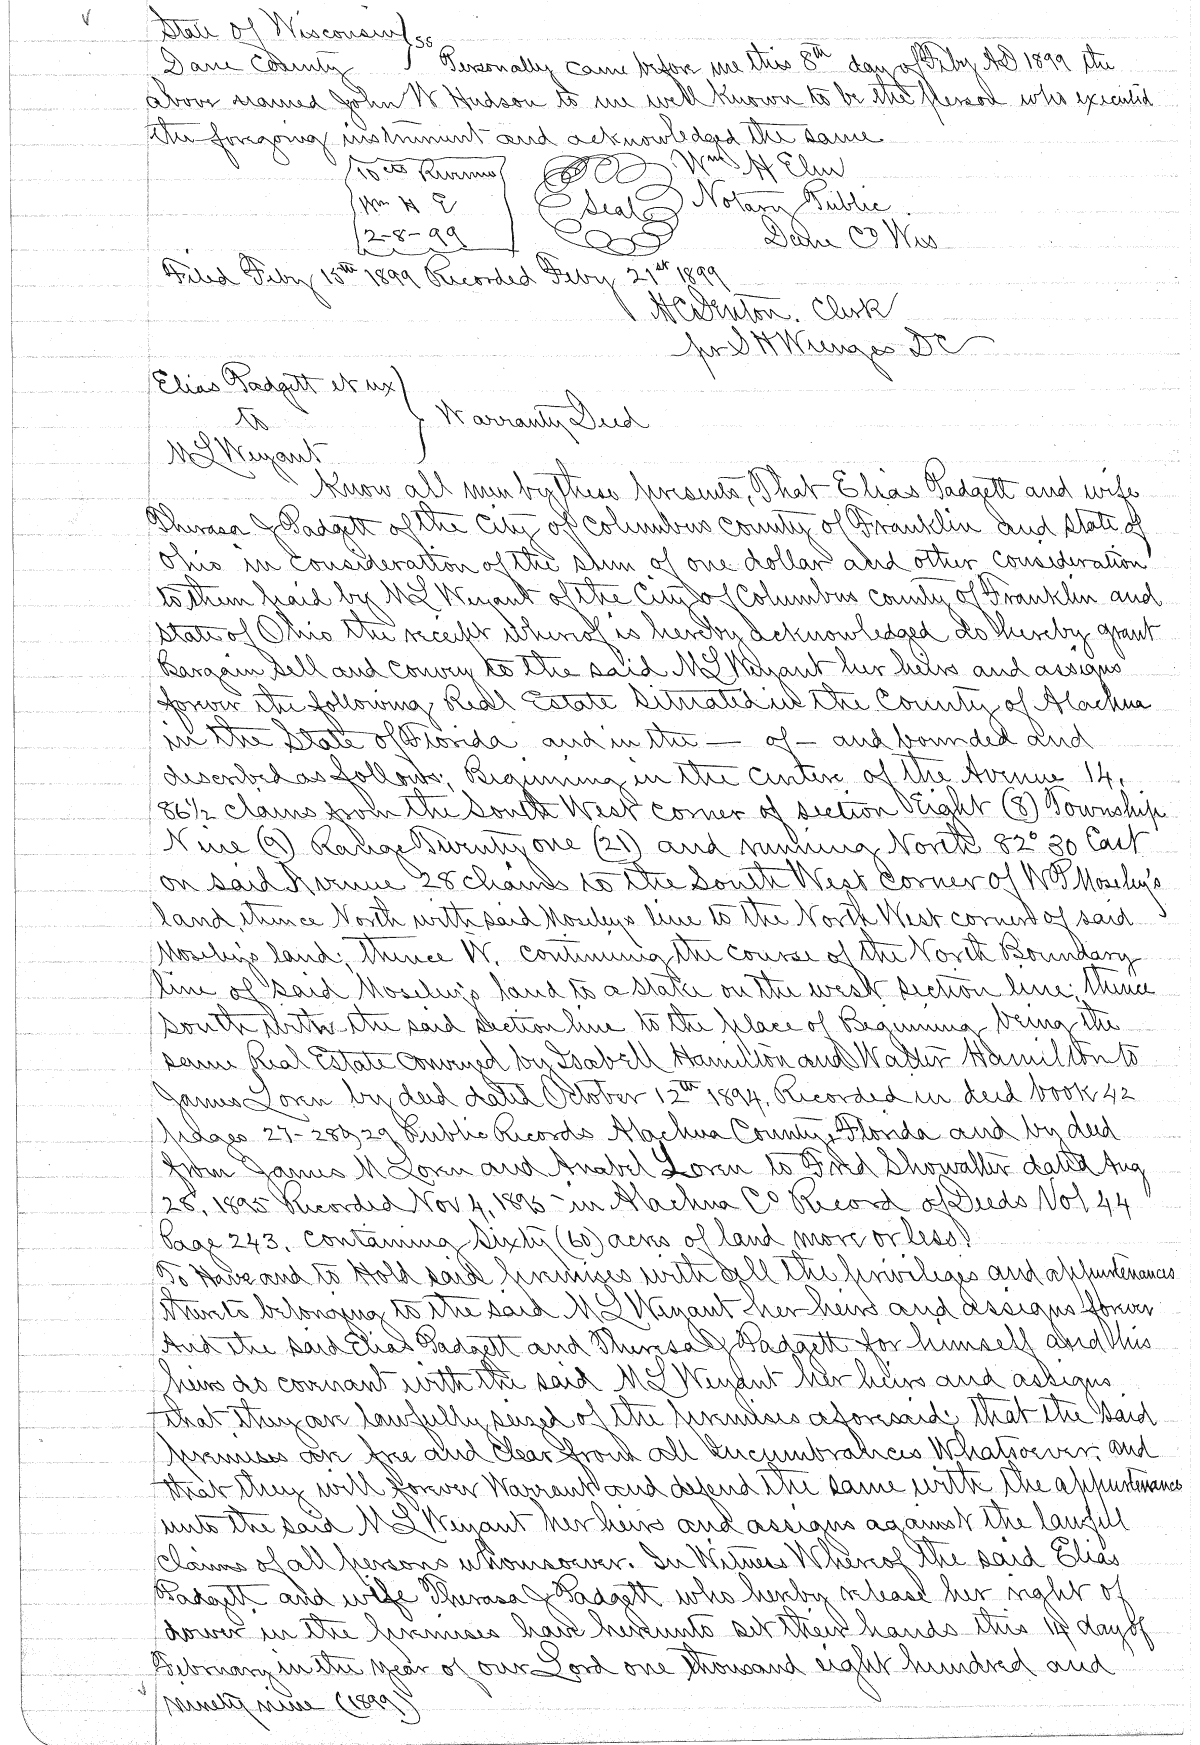 State of Wisconsin } ss
Dane County } Personally came before me this 8th day of Feby AD 1899 the
above named John W Hudson to me well known to be the person who executed
the foregoing instrument and acknowledged the same
10 cts Revenue
Wm H E
2-8-99
Seal
Wm H
Notary Public
Dane Co Wis
Filed Feby 15th 1899 Recorded Feby 21st 1899
H C Denton. Clerk
per S H Wienges DC
Elias Padgett et ux
to
M L Weyant
} Warranty Deed
Know all men by these presents, That Elias Padgett and wife
Therasa J Padgett of the City of Columbus County of Franklin and State of
Ohio in consideration of the sum of one dollar and other consideration
to them paid by M L Weyant of the City of Columbus County of Franklin and
State of Ohio the receipt whereof is hereby acknowledged do hereby grant
Bargain Sell and convey to the said M L Weyant her heirs and assigns
forever the following Real Estate Situated in the County of Alachua
in the State of Florida and in the — of — and bounded and
described as follows; Beginning in the centere of the Avenue 14.
86½ chains from the South West corner of section Eight (8) Township
Nine (9) Range Twenty one (21) and running North 82° 30 East
on said Avenue 28 chains to the South West Corner of W P Moseley's
land, thence North with said Moseleys line to the North West corner of said
Moseley's land; thence W. continuing the course of the North Boundary
line of said Moseley's land to a stake on the west section line; thence
south with the said section line to the place of Beginning being the
same Real Estate conveyed by Isabell Hamilton and Walter Hamilton to
James Loren by deed dated October 12th 1894. Recorded in deed book 42
pages 27-28&29 Public Records Alachua County, Florida and by deed
from James M Loren and Anabel Loren to Fred Showalter dated Aug
28, 1895 Recorded Nov 4, 1895 in Alachua Co Record of Deeds Vol 44
Page 243. containing Sixty (60) acres of land more or less.
To Have and to Hold said premises with all the privileges and appurtenances
thereto belonging to the said M L Weyant her heirs and assigns forever
And the said Elias Padgett and Theresa J Padgett for himself and his
heirs do covenant with the said M L Weyant her heirs and assigns
that they are lawfully seized of the premises aforesaid; that the said
premises are free and clear from all Encumbrances Whatsoever; and
that they will forever Warrant and defend the same with the appurtenances
unto the said M L Weyant her heirs and assigns against the lawfull
claims of all persons whomsoever. In Witness Whereof the said Elias
Padgett and wife Therasa J Padgett who hereby release her right of
dower in the premises have hereunto set their hands this 14 day of
February in the year of our Lord one thousand eight hundred and
ninety nine (1899)